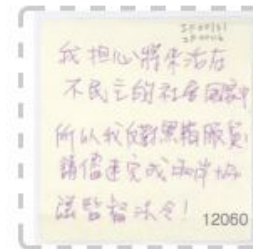 我担心將來活在
不民主的社會國家中
所以我反對黑箱服貿!
請儘速完成兩岸協
議監督法令!
12060